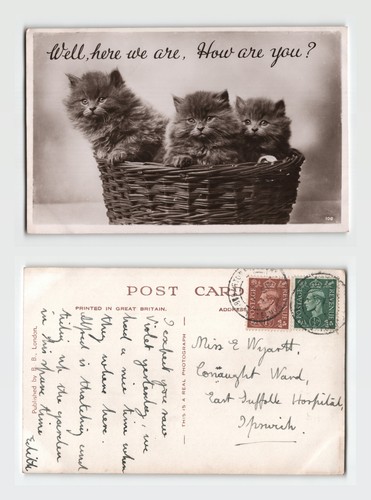 Well, here we are, How are you?
106
POST CARD
PRINTED IN GREAT BRITAIN.
ADDRESS
Published by R. B., London.
THIS IS A REAL PHOTOGRAPH
I expect you saw
Violet yesterday, we
had a nice time when
they where here.
Alfred is thatching and
tiding up the garden
in his spare time
Edith
POSTAGE REVENUE
POSTAGE REVENUE
Miss E Wyartt,
Connaught Ward,
East Suffolk Hospital,
Ipswich